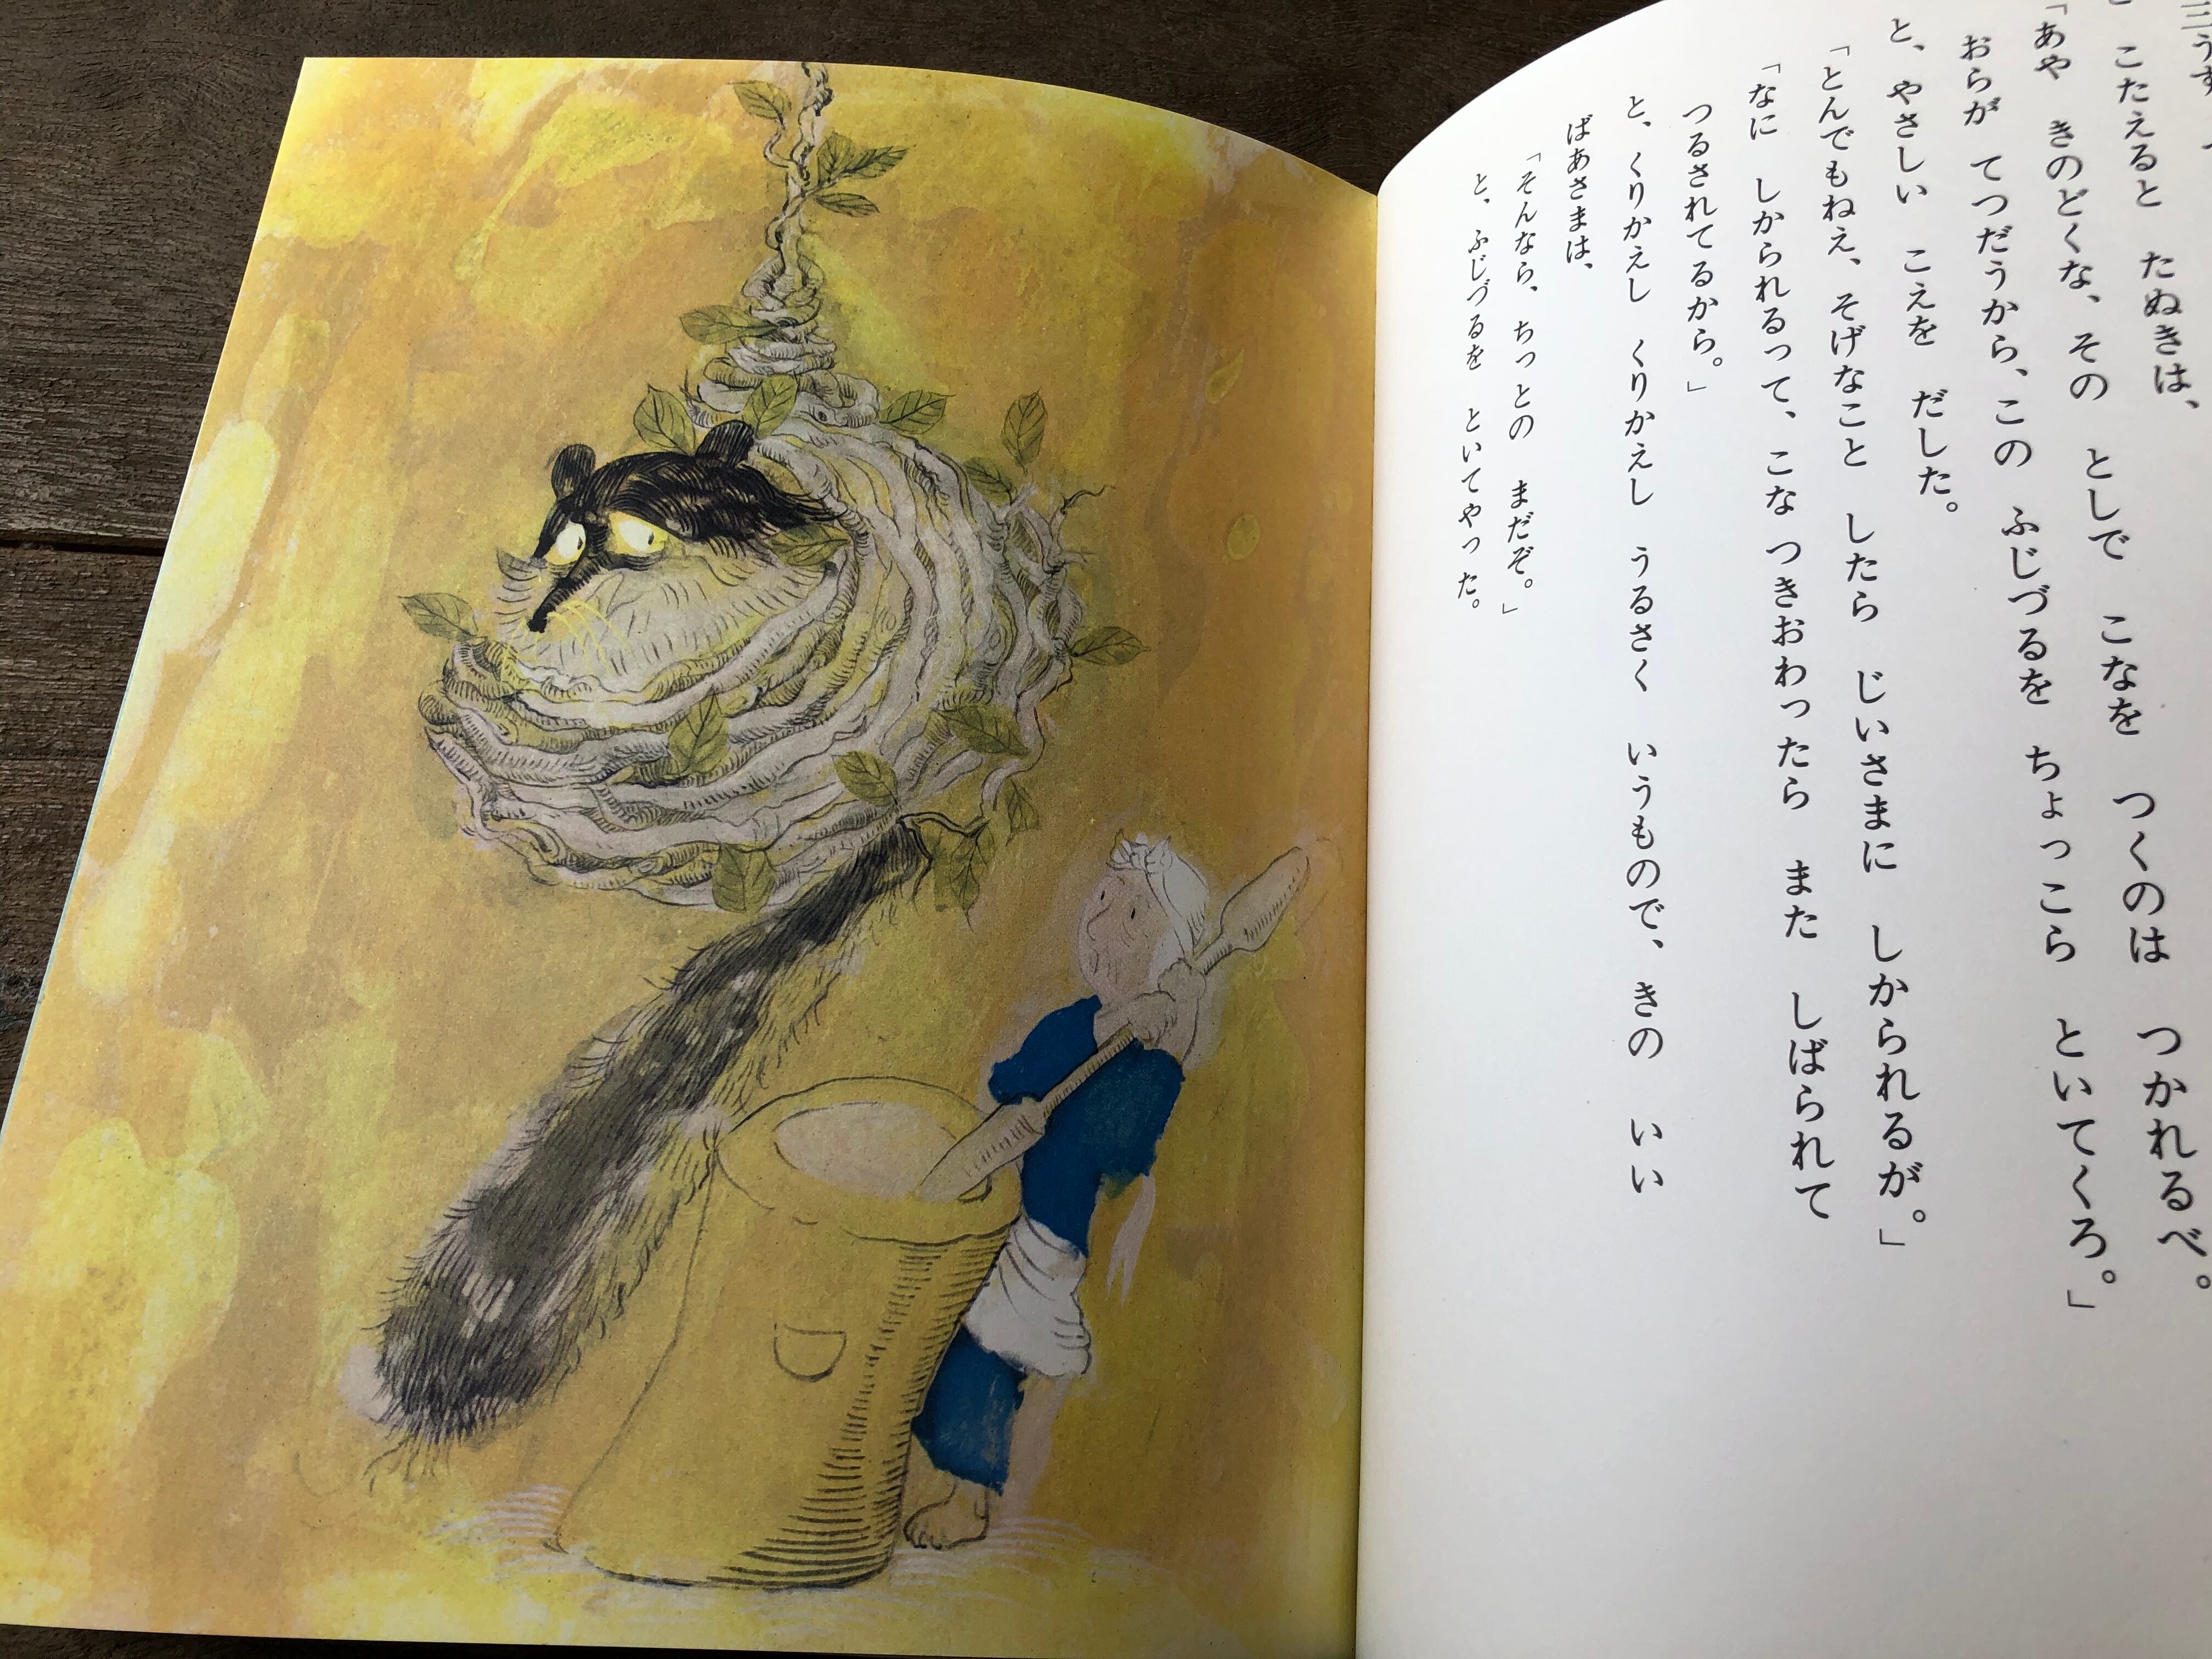 三うす
こたえると　たぬきは、
「あや　きのどくな、その　としで　こなを　つくのは　つかれるべ。
おらが　てつだうから、この　ふじづるを　ちょっこら　といてくろ。」
と、やさしい　こえを　だした。
「とんでもねえ、そげなこと　したら　じいさまに　しかられるが。」
「なに　しかられるって、こな　つきおわったら　また　しばられて
つるされてるから。」
と、くりかえし　くりかえし　うるさく　いうもので、きの　いい
ばあさまは、
「そんなら、ちっとの　まだぞ。」
と、ふじづるを　といてやった。